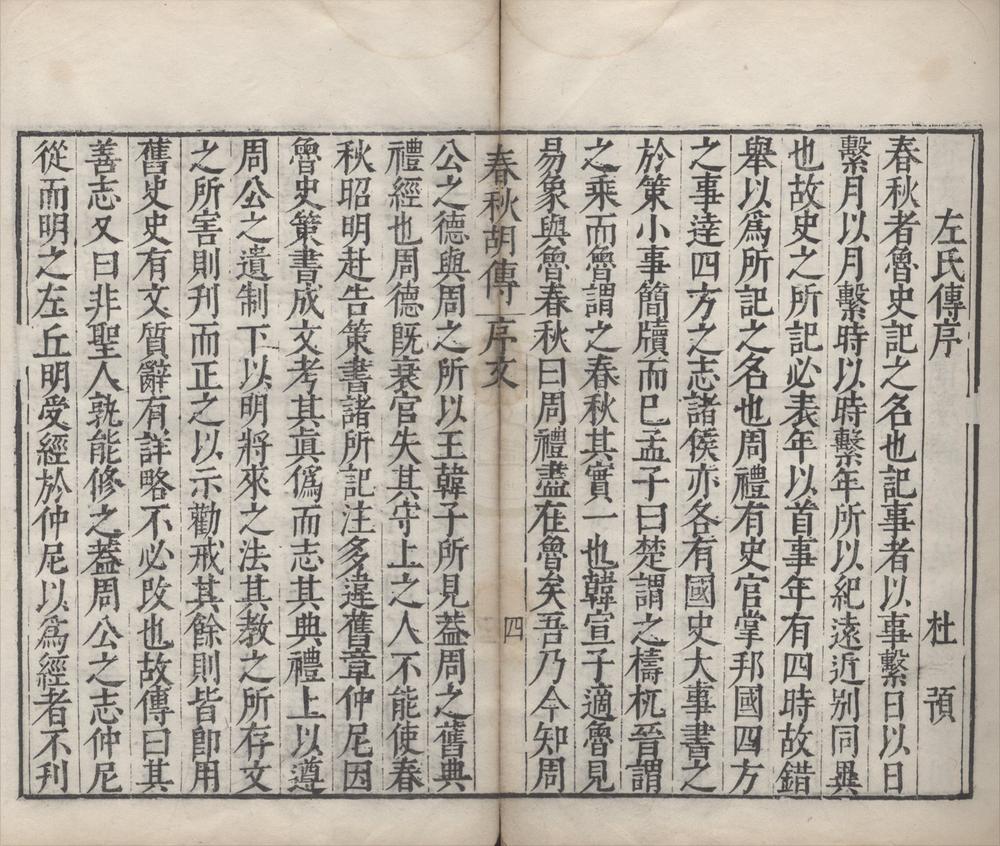 左氏傳序 杜預
春秋者魯史記之名也記事者以事繫日以日
繫月以月繫時以時繫年所以紀遠近別同異
也故史之所記必表年以首事年有四時故錯
舉以爲所記之名也周禮有史官掌邦國四方
之事達四方之志諸侯亦各有國史大事書之
於策小事簡牘而已孟子曰楚謂之檮杌晉謂
之乘而魯謂之春秋其實一也韓宣子適魯見
易象與魯春秋曰周禮盡在魯矣吾乃今知周
春秋胡傳 序文 四
公之德與周之所以王韓子所見蓋周之舊典
禮經也周德旣衰官失其守上之人不能使春
秋昭明赴告策書諸所記注多違舊章仲尼因
魯史策書成文考其眞僞而志其典禮上以遵
周公之遺制下以明將來之法其教之所存文
之所害則刋而正之以示勸戒其餘則皆卽用
舊史史有文質辭有詳略不必改也故傳曰其
善志又曰非聖人孰能修之蓋周公之志仲尼
從而明之左丘明受經於仲尼以爲經者不刋